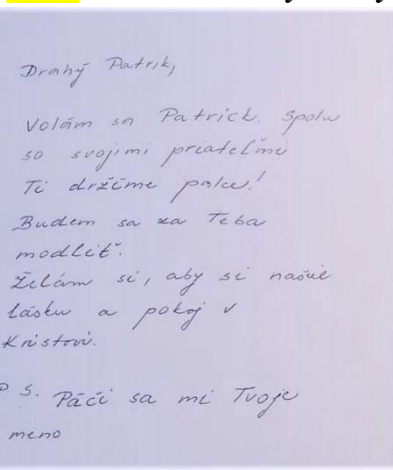 Drahý Patrik,
Volám sa Patrick. Spolu
so svojimi priateľmi
Ti držíme palce!
Budem sa za Teba
modliť.
Želám si, aby si našiel
lásku a pokoj v
Kristovi.
P S. Páči sa mi Tvoje
meno